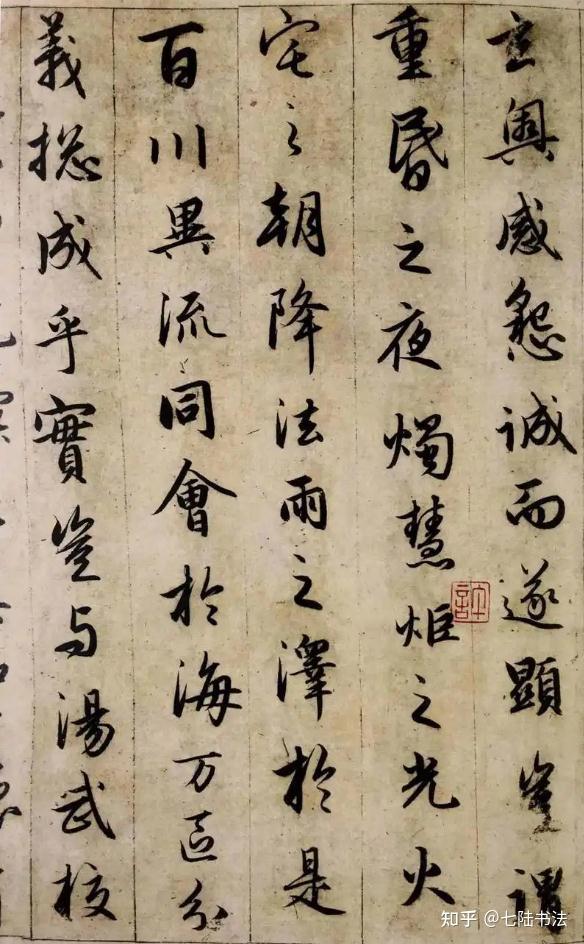 玄奧感懇誠而遂顯豈謂
重昬之夜燭慧炬之光火
宅之朝降法雨之澤於是
百川異流同會於海万區分
義揔成乎實豈与湯武校
知乎 @七陆书法